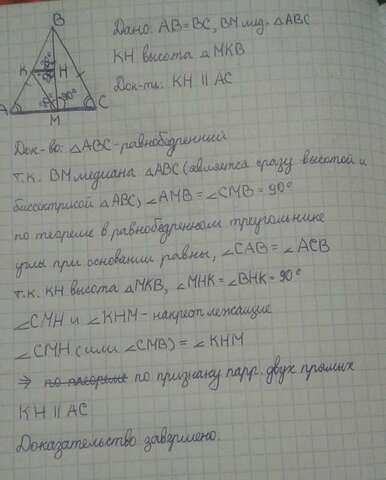 B
Дано: AB=BC, BM мед. △ABC
K H
KH высота △MKB
90° 90°
Док-ть: KH || AC
A C
M
Док-во: △ABC-равнобедренный
т.к. BM медиана △ABC (является сразу высотой и
биссектрисой △ABC), ∠AMB = ∠CMB = 90°
по теореме в равнобедренном треугольнике
углы при основании равны, ∠CAB = ∠ACB
т.к. KH высота △MKB, ∠MHK = ∠BHK = 90°
∠CMH и ∠KHM - накрест лежащие
∠CMH (или ∠CMB) = ∠KHM
⇒ по теореме по признаку парр. двух прямых
KH || AC
Доказательство завершено.